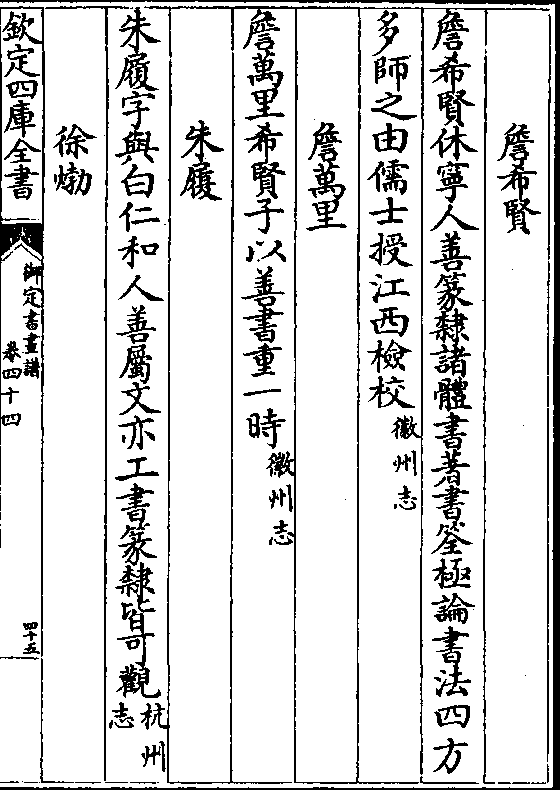 詹希賢
詹希賢休寧人善篆隸諸體書著書筌極論書法四方
多師之由儒士授江西檢校徽州志
詹萬里
詹萬里希賢子以善書重一時徽州志
朱履
朱履字與白仁和人善屬文亦工書篆隸皆可觀杭州志
徐㶿
欽定四庫全書
御定書畫譜
卷四十四
四十五